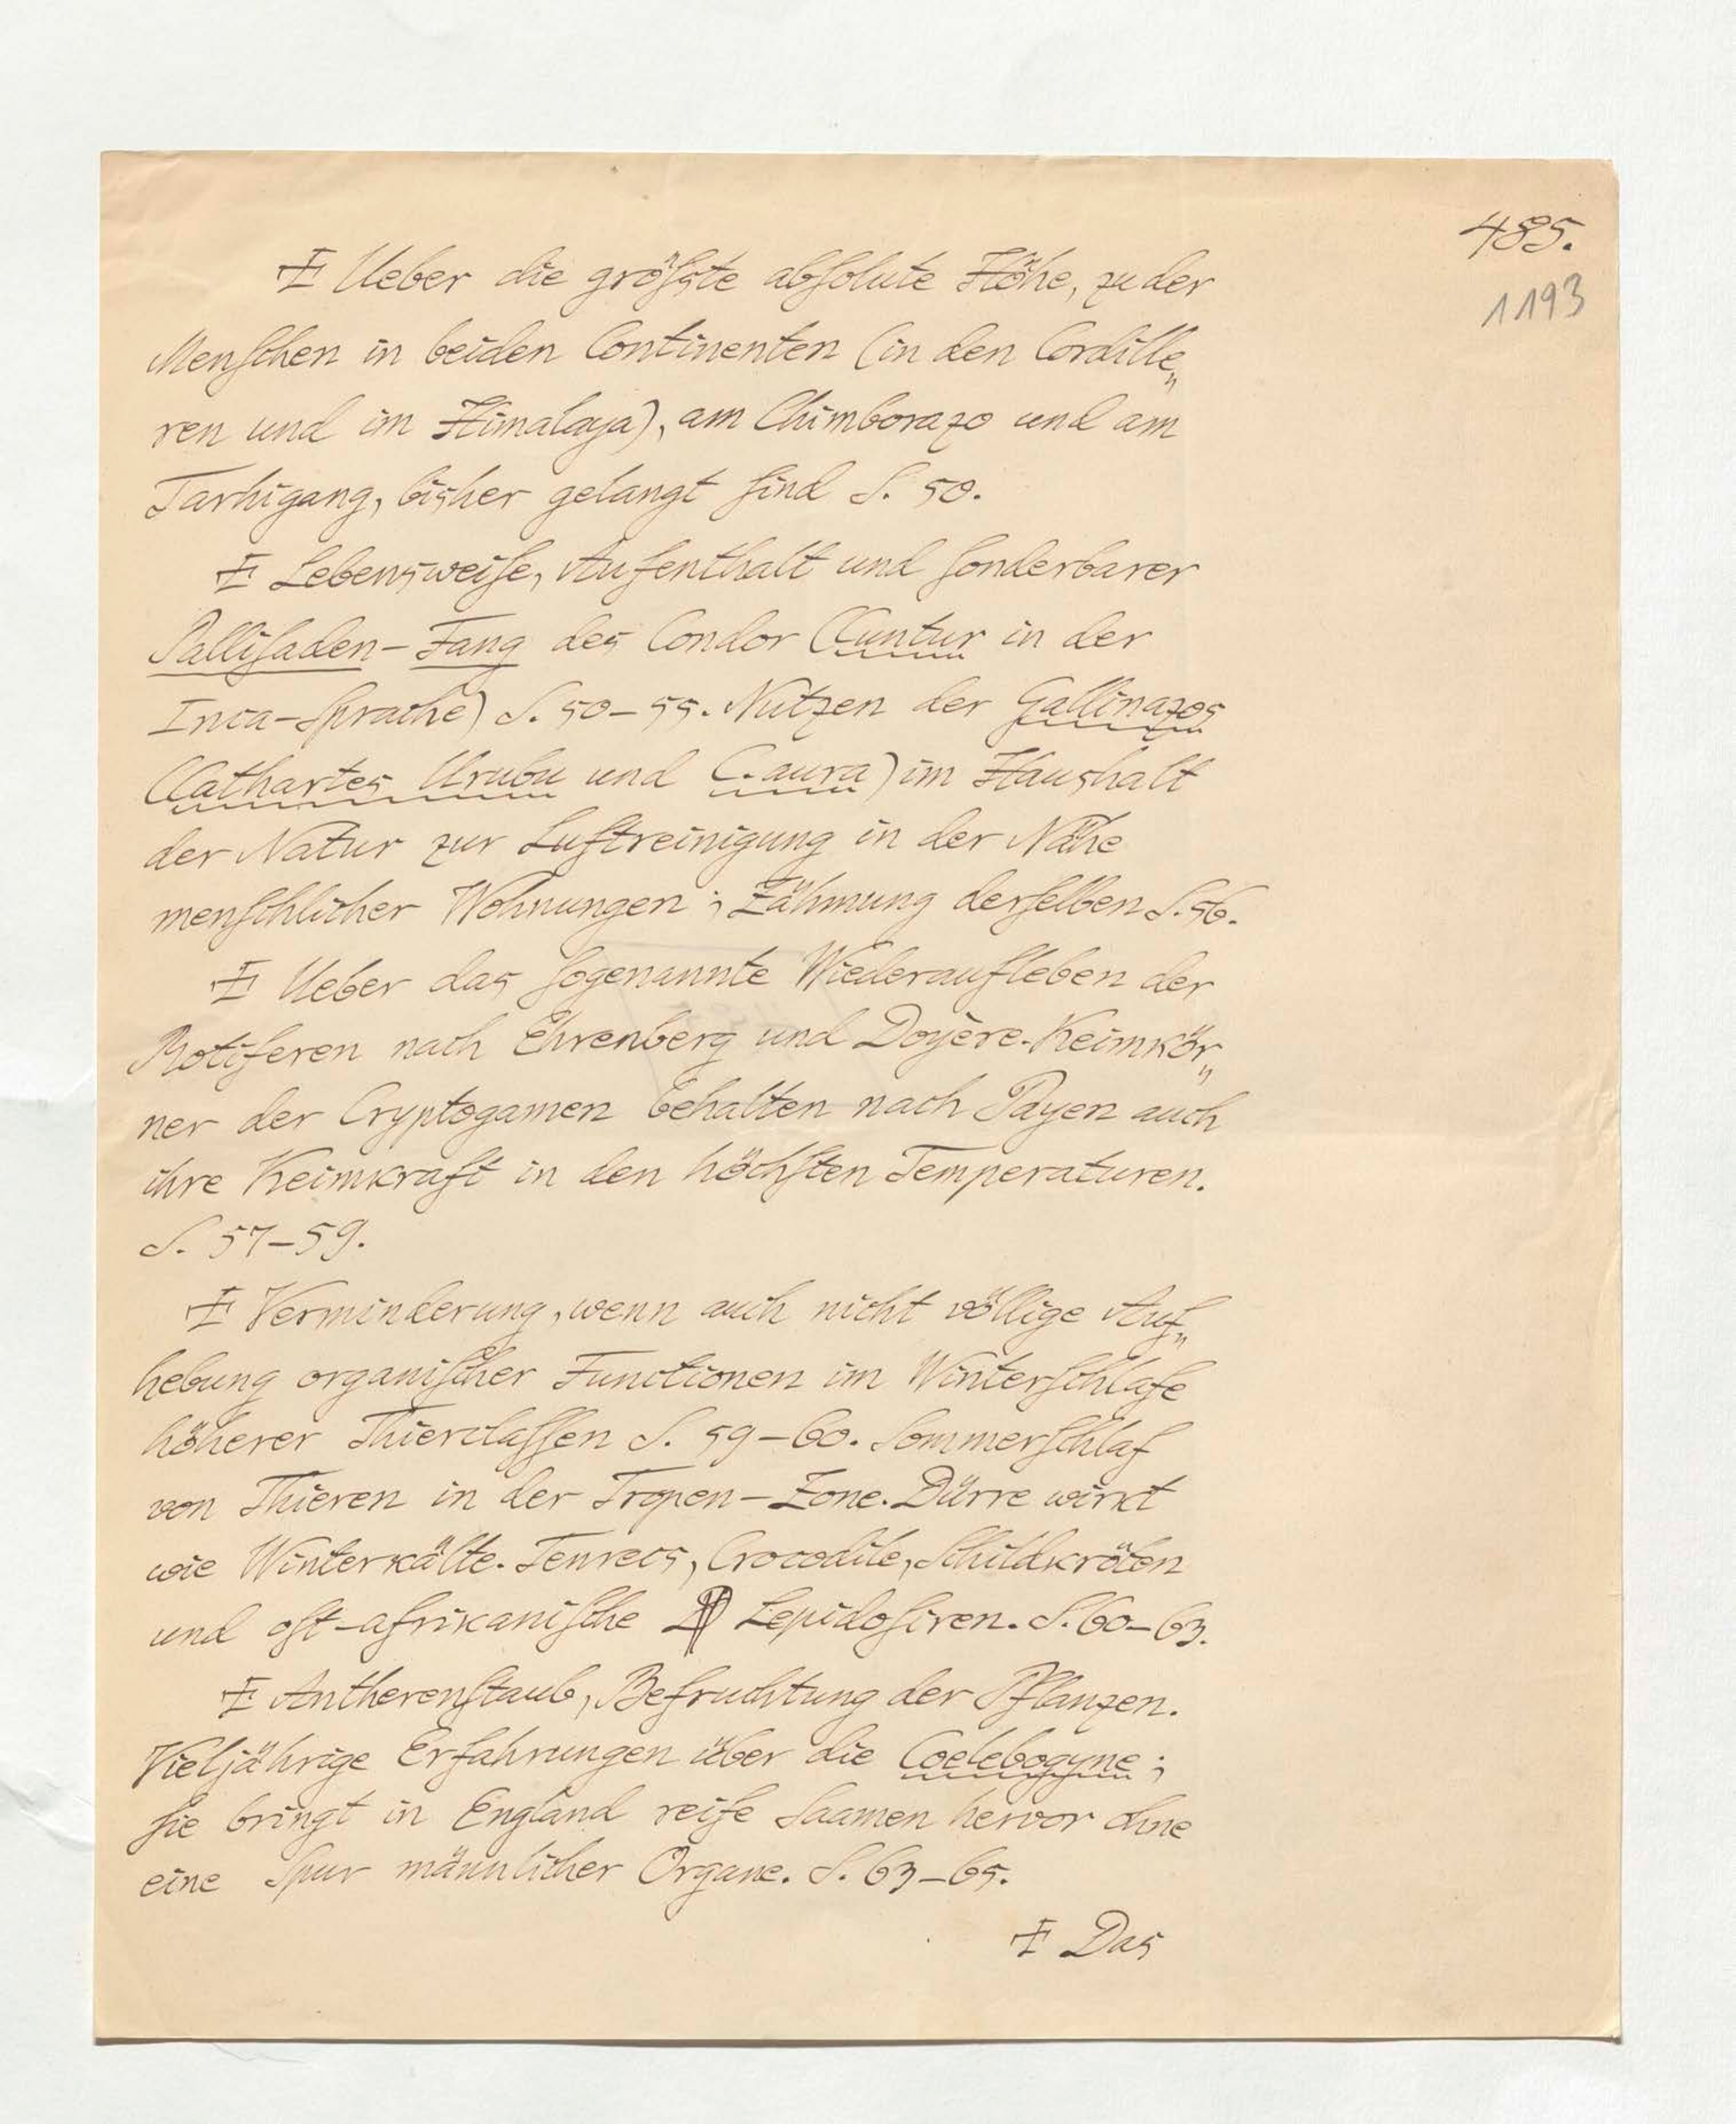 485.
1193
Ueber die größte absolute Höhe, zu der
Menschen in beiden Continenten (in den Cordille„
ren und im Himalaya), am Chimborazo und am
Tarhigang, bisher gelangt sind S. 50.
Lebensweise, Aufenthalt und sonderbarer
Pallisaden-Fang des Condor (Cuntur in der
Inca-Sprache) S. 50–55. Nutzen der Gallinazos
(Cathartes Urubu und C. aura) im Haushalt
der Natur zur Luftreinigung in der Nähe
menschlicher Wohnungen; Zähmung derselben S. 56.
Ueber das sogenannte Wiederaufleben der
Rotiferen nach Ehrenberg und Doyère. Keimkör„
ner der Cryptogamen behalten nach Payen auch
ihre Keimkraft in den höchsten Temperaturen.
S. 57–59.
Verminderung, wenn auch nicht völlige Auf„
hebung organischer Functionen im Winterschlafe
höherer Thierclassen S. 59–60. Sommerschlaf
von Thieren in der Tropen-Zone. Dürre wirkt
wie Winterkälte. Tenrecs, Crocodile, Schildkröten
und ost-afrikanische Lepidosiren. S. 60–63.
Antherenstaub, Befruchtung der Pflanzen.
Vieljährige Erfahrungen über die Coelebogyne;
sie bringt in England reife Saamen hervor ohne
eine Spur männlicher Organe. S. 63–65.
Das